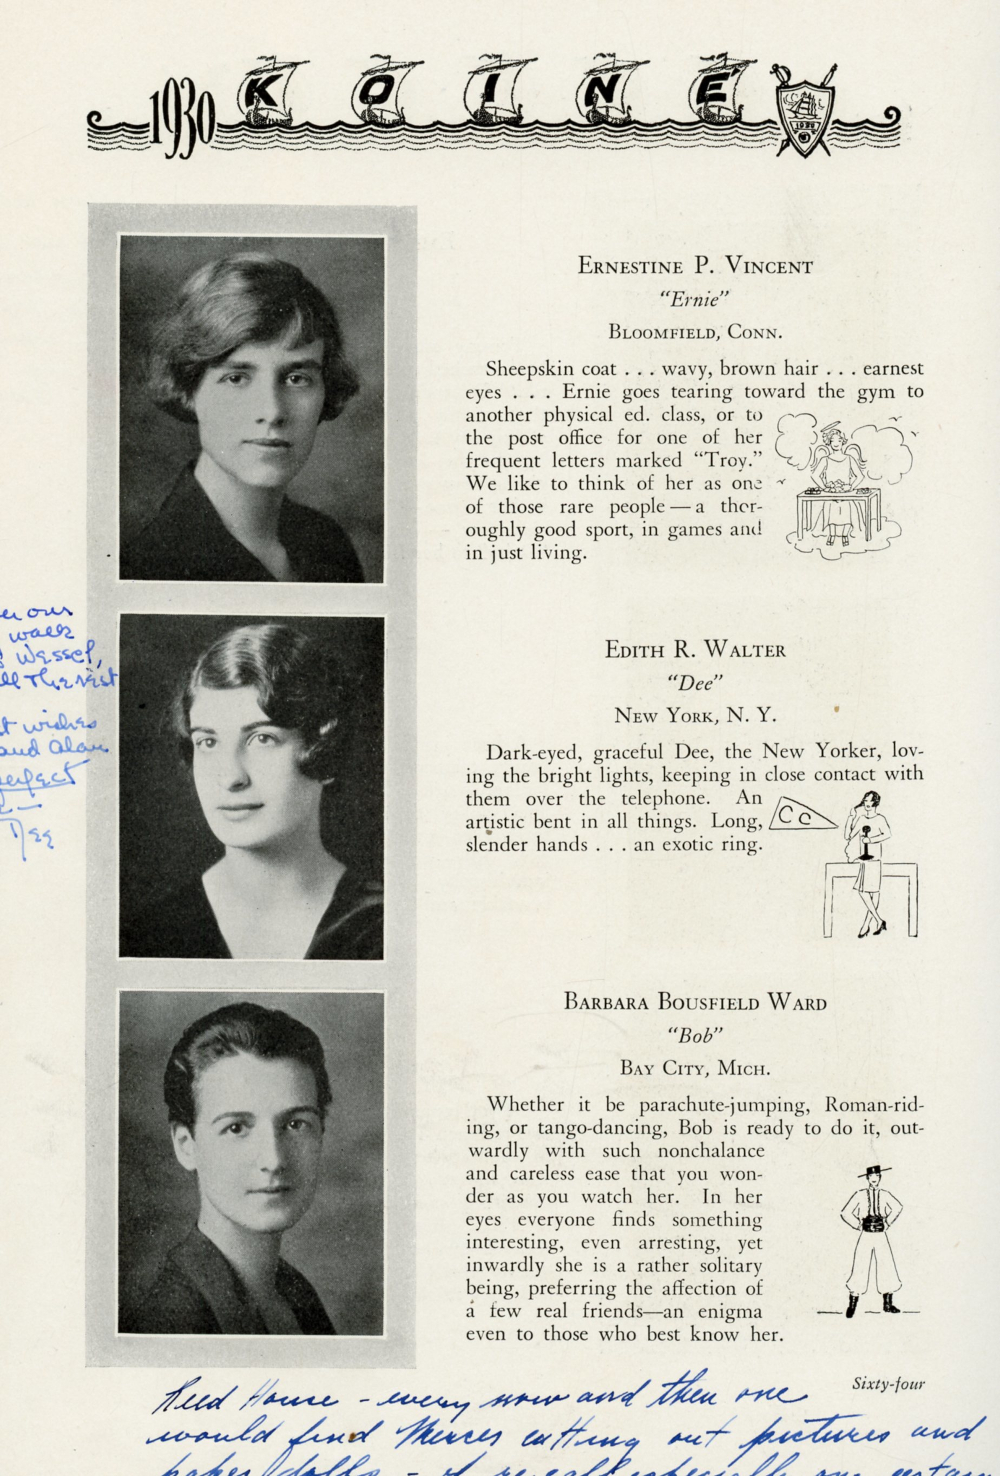 1930 KOINÉ
ERNESTINE P. VINCENT
"Ernie"
BLOOMFIELD, CONN.
Sheepskin coat . . . wavy, brown hair . . . earnest
eyes . . . Ernie goes tearing toward the gym to
another physical ed. class, or to
the post office for one of her
frequent letters marked "Troy."
We like to think of her as one
of those rare people—a thor-
oughly good sport, in games and
in just living.
our
walk
Wessel,
all the rest
wishes
and Alan
perfect
Dee
EDITH R. WALTER
"Dee"
NEW YORK, N. Y.
Dark-eyed, graceful Dee, the New Yorker, lov-
ing the bright lights, keeping in close contact with
them over the telephone. An
artistic bent in all things. Long,
slender hands . . . an exotic ring.
CC
BARBARA BOUSFIELD WARD
"Bob"
BAY CITY, MICH.
Whether it be parachute-jumping, Roman-rid-
ing, or tango-dancing, Bob is ready to do it, out-
wardly with such nonchalance
and careless ease that you won-
der as you watch her. In her
eyes everyone finds something
interesting, even arresting, yet
inwardly she is a rather solitary
being, preferring the affection of
a few real friends—an enigma
even to those who best know her.
Sixty-four
Reed House - every now and then one
would find Mercer cutting out pictures and
paper dolls -